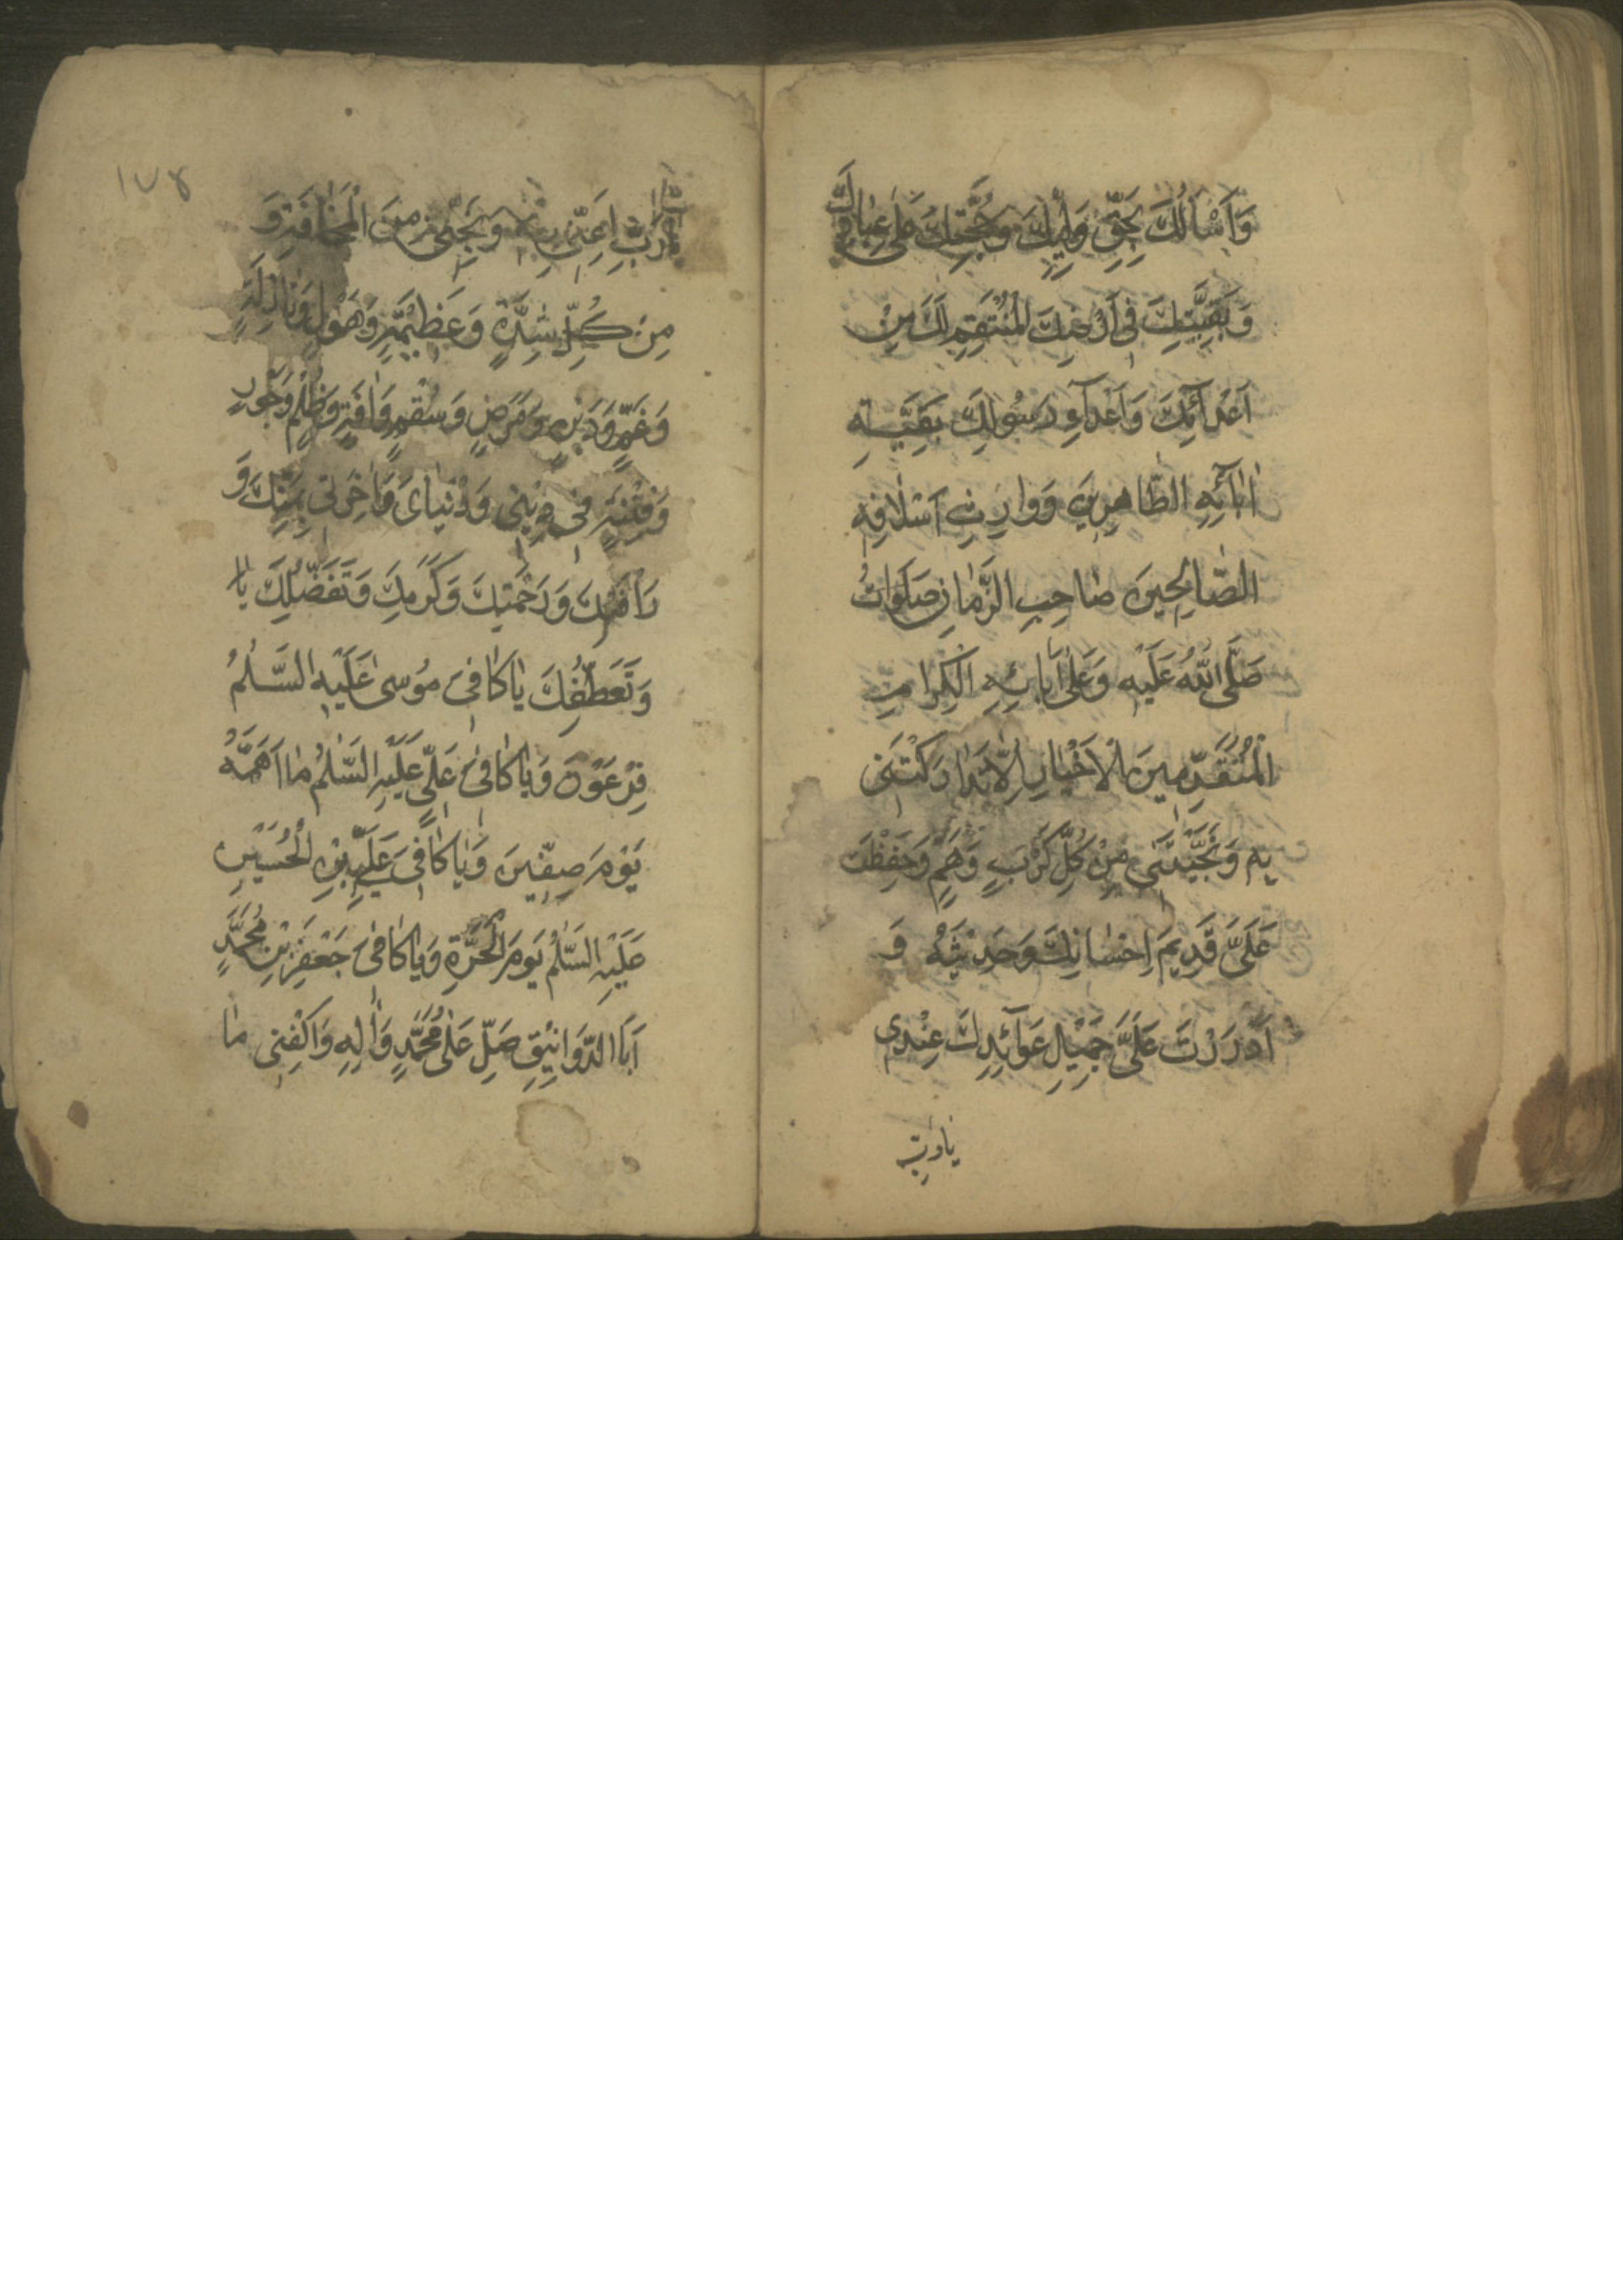 وَاَسْأَلُكَ بِحَقِّ وَلِيِّكَ وَحُجَّتِكَ عَلىٰ عِبَادِكَ
وَبَقِيَّتِكَ فِى اَرْضِكَ الْمُنْتَقِمِ لَكَ مِنْ
اَعْدَائِكَ وَاَعْدَآءِ رَسُولِكَ بَقِيَّةِ
اٰبَائِهِ الطَّاهِرِينَ وَوَارِثِ اَسْلَافِهِ
الصَّالِحِينَ صَاحِبِ الزَّمَانِ صَلَوَاتُ
صَلَّى اللّٰهُ عَلَيْهِ وَعَلىٰ اٰبَائِهِ الْكِرَامِ
الْمُتَقَدِّمِينَ الْاَخْيَارِ اِلَّا تَدَارَكْتَنِى
بِهِ وَنَجَّيْتَنِى مِنْ كُلِّ كَرْبٍ وَهَمٍّ وَحَفِظْتَ
عَلَىَّ قَدِيمَ اِحْسَانِكَ وَحَدِيثَهُ وَ
اَدْرَرْتَ عَلَىَّ جَمِيلَ عَوَآئِدِكَ عِنْدِى
يَا رَبِّ
١٧٤
يَا رَبِّ اَعِنِّى بِهِ وَنَجِّنِى مِنَ الْمَخَافَةِ وَ
مِنْ كُلِّ شِدَّةٍ وَعَظِيمَةٍ وَهَوْلٍ وَنَازِلَةٍ
وَغَمٍّ وَدَيْنٍ وَمَرَضٍ وَسُقْمٍ وَاٰفَةٍ وَظُلْمٍ وَجَوْرٍ
وَفِتْنَةٍ فِى دِينِى وَدُنْيَاىَ وَاٰخِرَتِى بِمَنِّكَ وَ
رَأْفَتِكَ وَرَحْمَتِكَ وَكَرَمِكَ وَتَفَضُّلِكَ يَا
وَتَعَطُّفِكَ يَا كَافِىَ مُوسىٰ عَلَيْهِ السَّلٰمُ
فِرْعَوْنَ وَيَا كَافِىَ عَلِىٍّ عَلَيْهِ السَّلٰمُ مَا اَهَمَّهُ
يَوْمَ صِفِّينَ وَيَا كَافِىَ عَلِىِّ بْنِ الْحُسَيْنِ
عَلَيْهِ السَّلٰمُ يَوْمَ الْحَرَّةِ وَيَا كَافِىَ جَعْفَرِ بْنِ مُحَمَّدٍ
اَبَا الدَّوَانِيقِ صَلِّ عَلىٰ مُحَمَّدٍ وَاٰلِهِ وَاكْفِنِى مَا